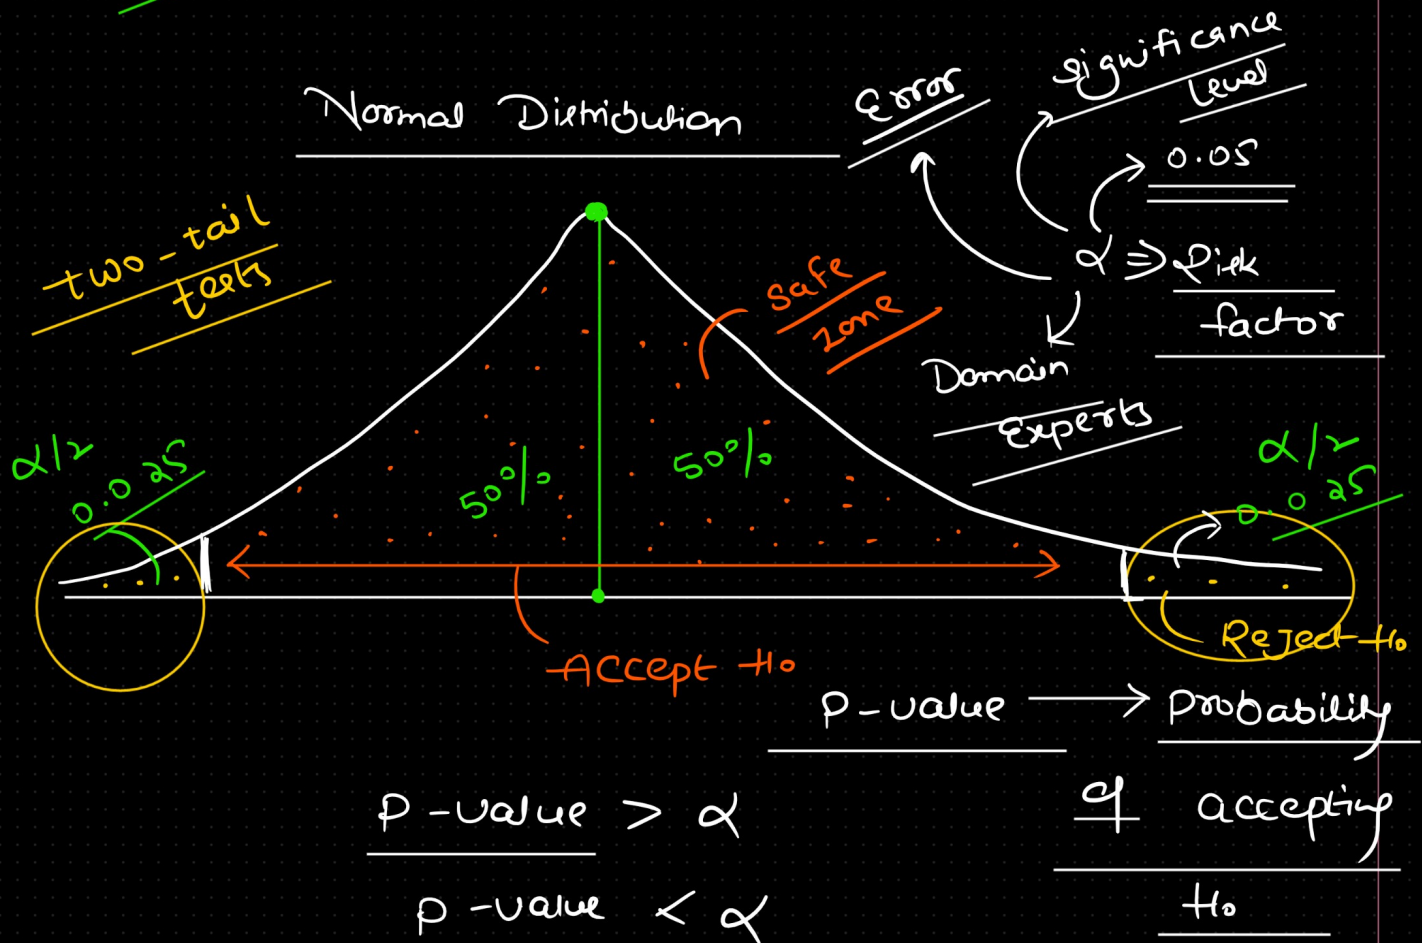 Normal Distribution
Error
significance
Level
0.05
α ⇒ Risk
factor
Domain
Experts
two-tail
tests
safe
zone
α/2
0.025
50%
50%
α/2
0.025
Accept Ho
Reject Ho
P-value → Probability
of accepting
Ho
P-value > α
P-value < α